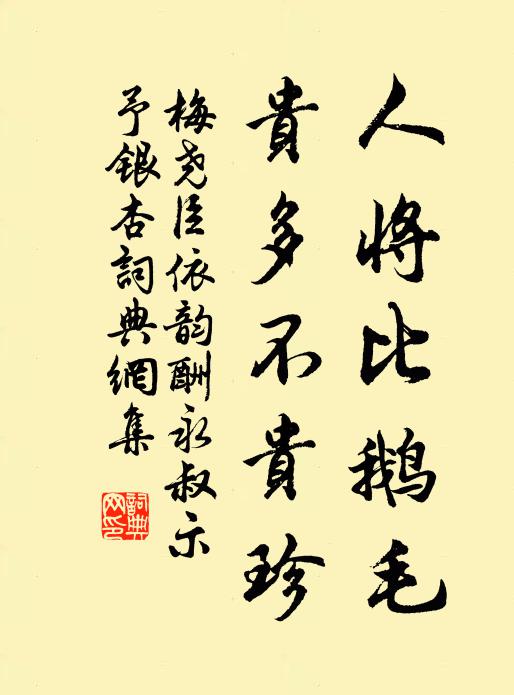 人将比鹅毛
貴多不貴珍
梅尧臣依韵酬永叔示
予银杏詞典網集
詞典
网印